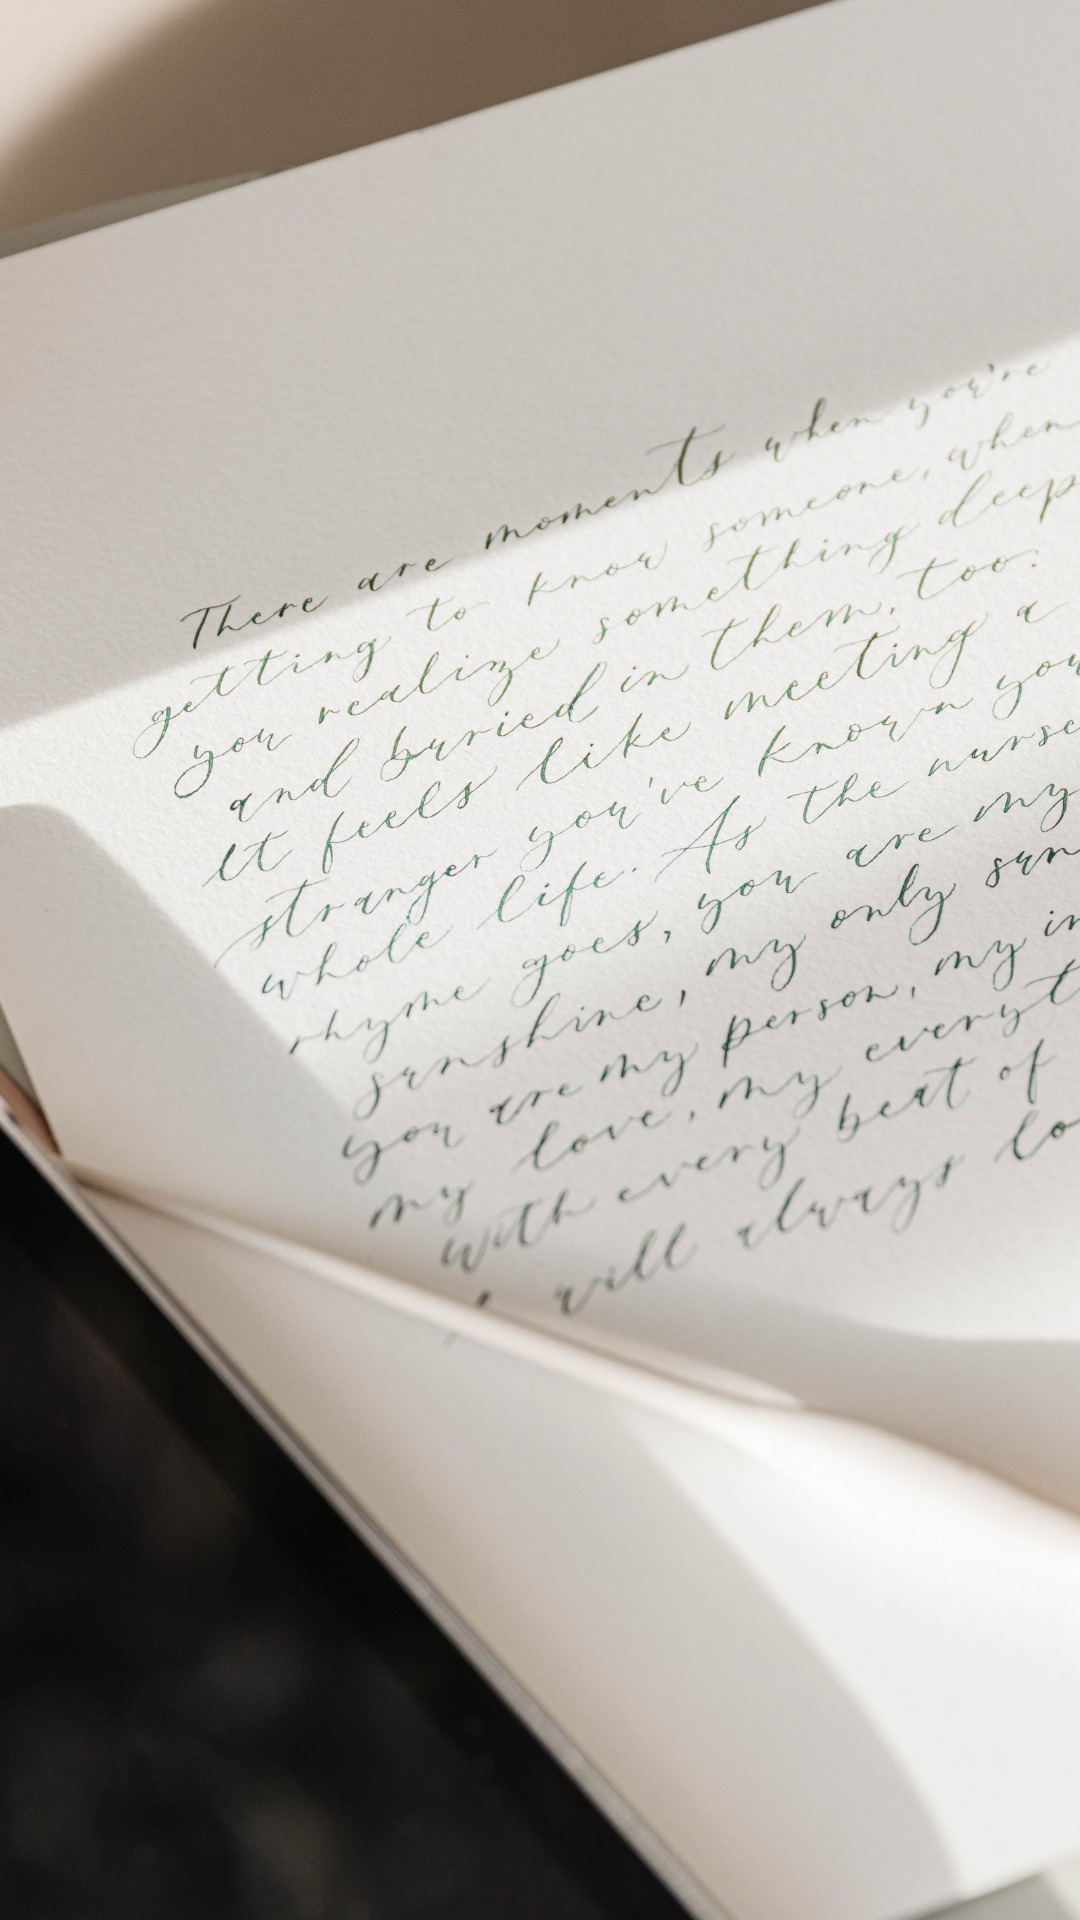 There are moments when you're
getting to know someone, when
you realize something deep
and buried in them, too.
It feels like meeting a
stranger you've known you
whole life. As the nurse
rhyme goes, you are my
sunshine, my only sun
you are my person, my in
my love, my everyt
with every beat of
I will always lo